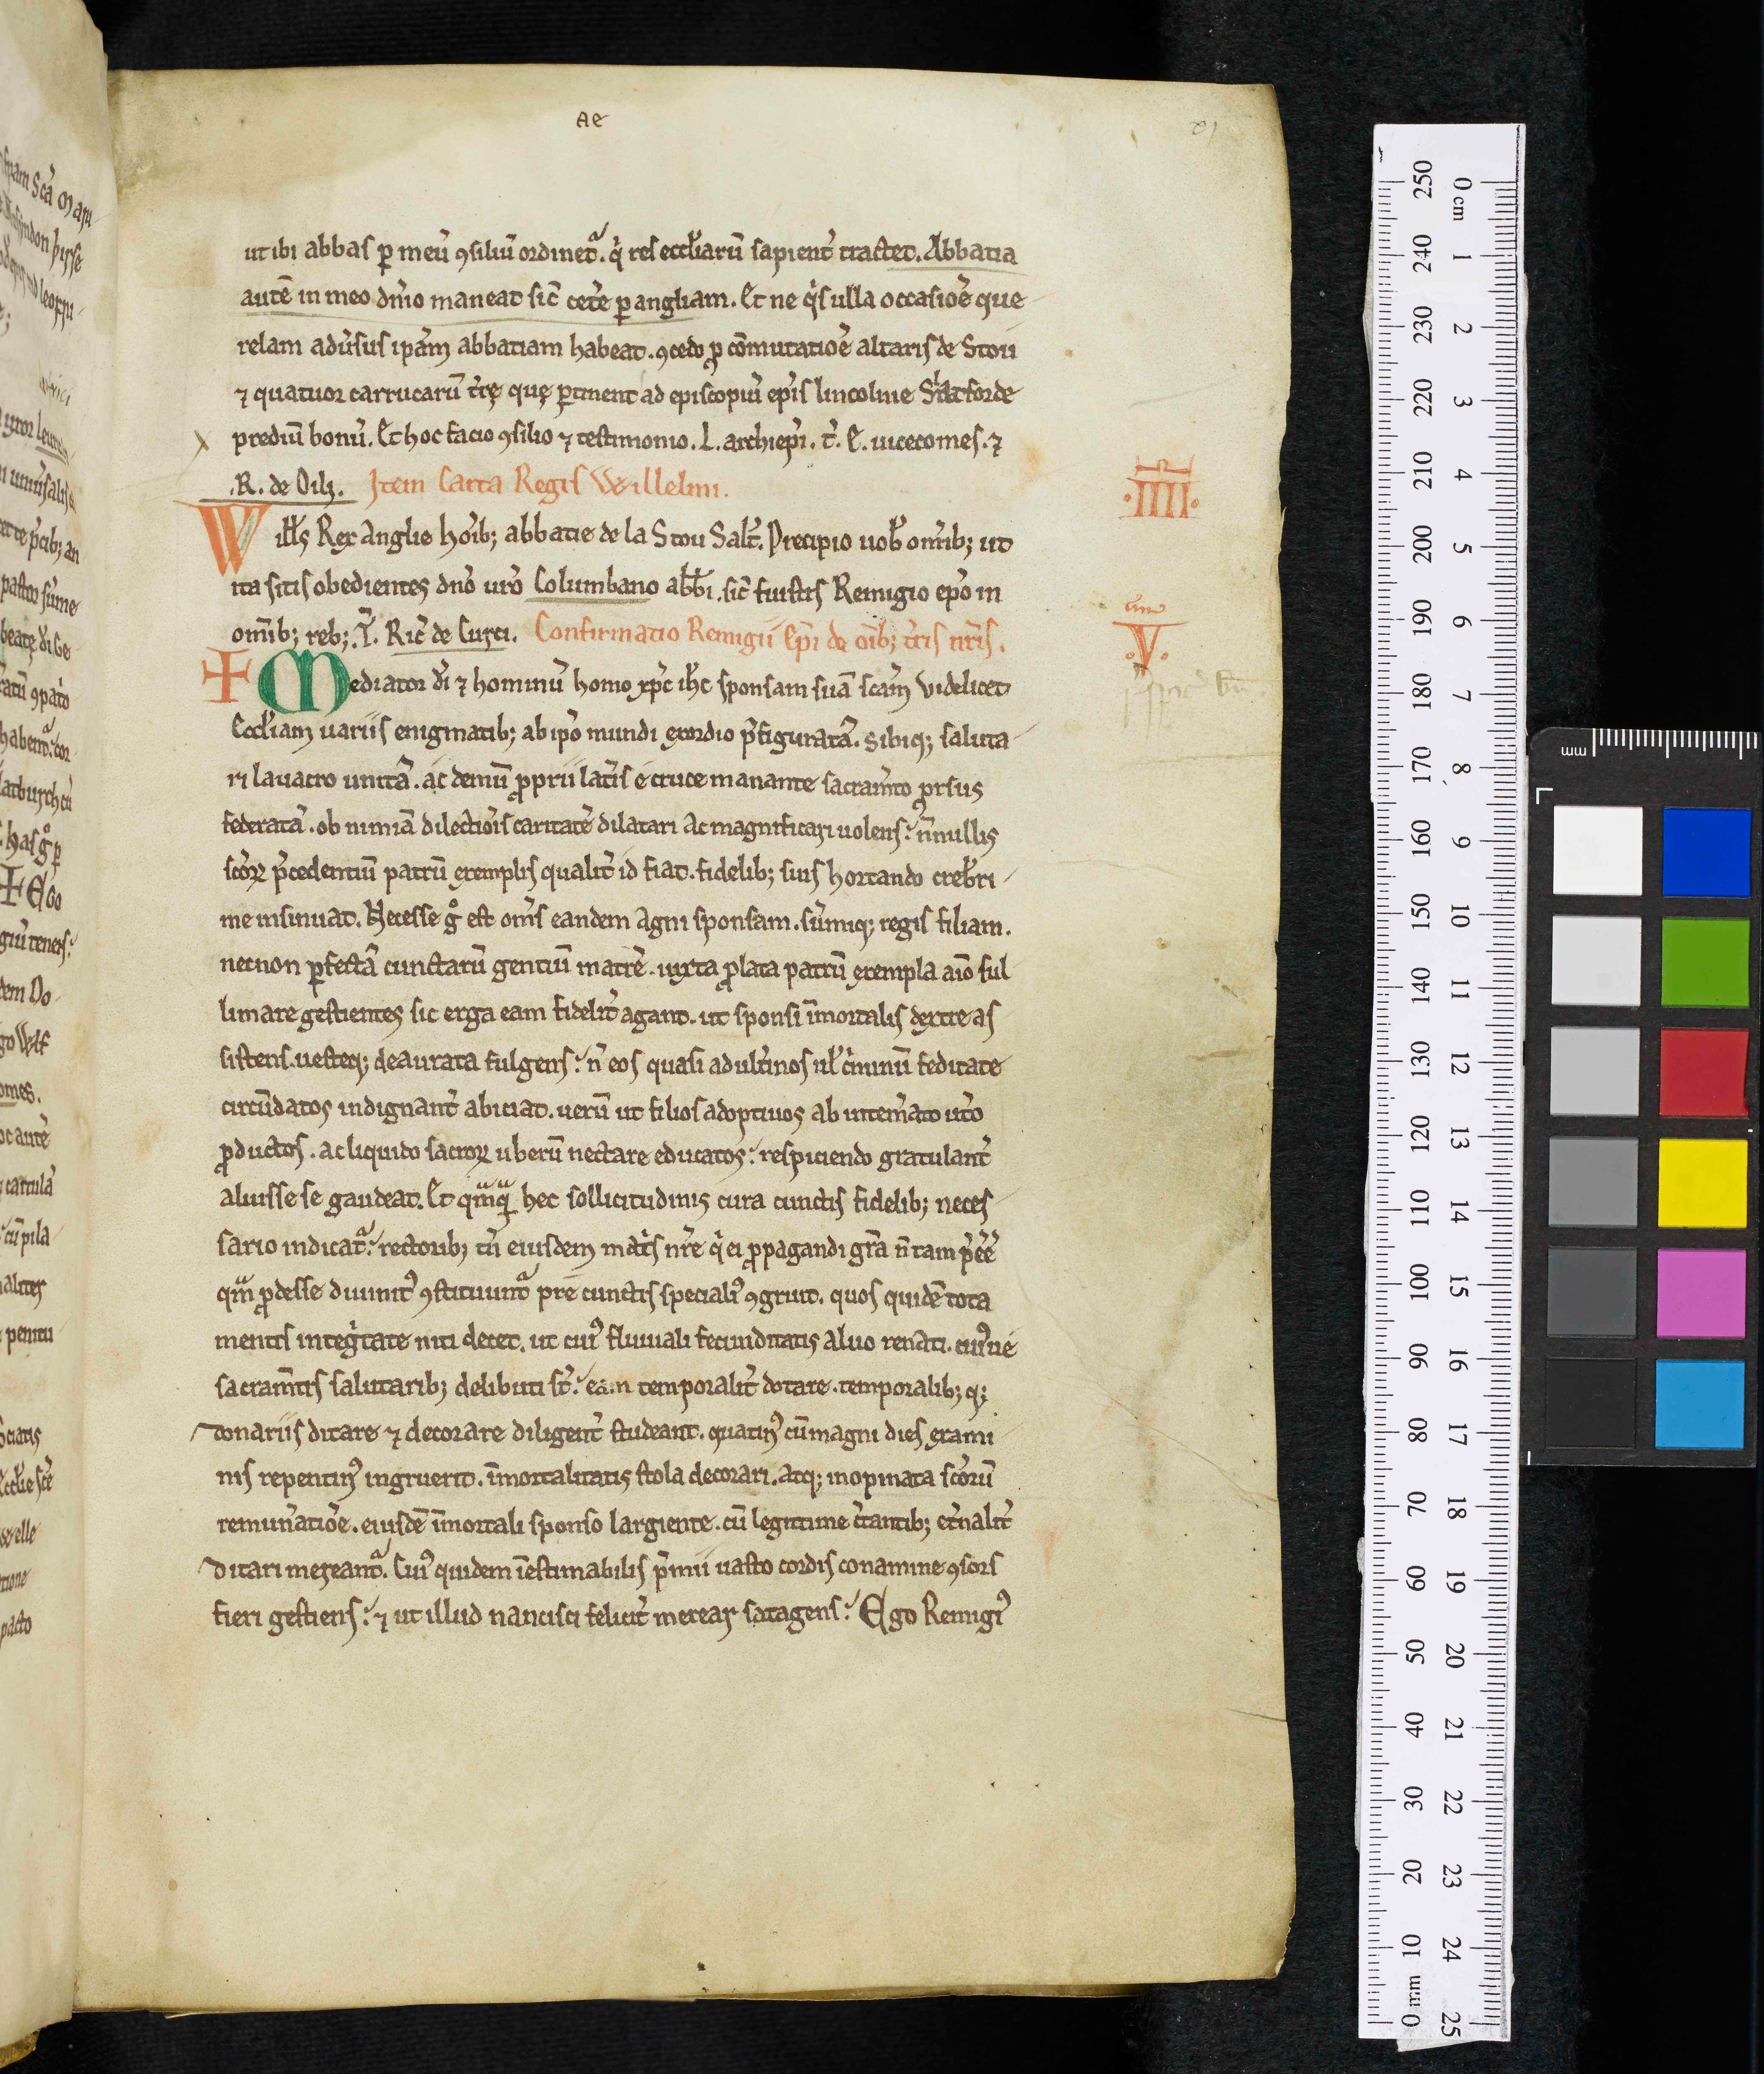 Ae
ut ibi abbas ꝑ meū ꝯsiliū ordinet᷑. q̇ res eccl̄iarū sapient̄ tractet. Abbatia
autē in meo dn̄io maneat sic̄ cet̄e ꝑ angliam. Et ne q̇s ulla occasiōe que
relam adūsus ipām abbatiam habeat. ꝯcedo ꝓ cōmutatiōe altaris de Stou
⁊ quatuor carrucarū t̄rę que ꝑtinent ad episcopiū ep̄is lincolnie Slatforde
prediū bonū. Et hoc facio ꝯsilio ⁊ testimonio. L. archiep̄i. t̄. E. uicecomes. ⁊
.R. de Oili. Item Carta Regis Willelmi.
.IIII.
Will̄s Rex Anglie hōib; abbatie de la Stou Sal̄t. Precipio uob̄ om̄ib; ut
ita sitis obedientes dn̄o ur̄o Columbano abb̄i. sic̄ fuistis Remigio ep̄o in
om̄ib; reb;. T̄. Ric̄ de Curci. Confirmatio Remigii Ep̄i de oīb; t̄ris nr̄is.
.V.
+ Mediator dī ⁊ hominū homo xp̄c ih̄c sponsam suā scām videlicet
Eccl̄iam uariis enigmatib; ab ip̄o mundi exordio p̄figuratā. sibiq; saluta
ri lauacro unitā. ac demū ꝓprii lat̄is e cruce manante sacram̄to ꝓrsus
federatā. ob nimiā dilectiōis caritatē dilatari ac magnificari uolens: n̄nullis
sc̄oꝝ p̄cedentiū patrū exemplis qualit̄ id fiat. fidelib; suis hortando creb̄ri
me insinuat. Necesse gͦ est om̄s eandem agni sponsam. sūmiq; regis filiam.
necnon ꝑfectā cunctarū gentiū matrē. iuxta ꝓlata patrū exempla aīo sul
limare gestientes sic erga eam fidelit̄ agant. ut sponsi īmortalis dextre as
sistens. uesteq; deaurata fulgens: n̄ eos quasi adult̄inos ul̄ c̄minū feditate
circūdatos indignant̄ abiciat. uerū ut filios adoptiuos ab intem̄ato ut̄o
ꝓductos. ac liquido sacroꝝ uberū nectare educatos: respiciendo gratulant̄
aluisse se gaudeat. Et qᵃmqᵃ hec sollicitudinis cura cunctis fidelib; neces
sario indicat᷑: rectorib; tn̄ eiusdem mat̄s nr̄e q̇ ei ꝓpagandi gr̄a n̄ tam p̄ēē
qᵃm ꝓdesse diuinit᷒ ꝯstituunt᷑ pre cunctis speciali᷒ ꝯgruit. quos quidē tota
mentis inteġtate niti decet. ut cui᷒ fluuiali fecunditatis aluo renati. cui᷒ue
sacram̄tis salutarib; delibuti st̄: eam temporalit̄ dotare. temporalib; q;
donariis ditare ⁊ decorare diligent̄ studeant. quatin᷒ cū magni dies exami
nis repentin᷒ ingruerit. īmortalitatis stola decorari. atq; inopinata sc̄orū
remun̄atiōe. eiusdē īmortali sponso largiente. cū legitime c̄tantib; et̄nalit̄
ditari mereant᷑. Cui᷒ quidem īestimabilis p̄mii uasto cordis conamine ꝯsors
fieri gestiens: ⁊ ut illud nancisci felicit̄ merear satagens: Ego Remigi᷒